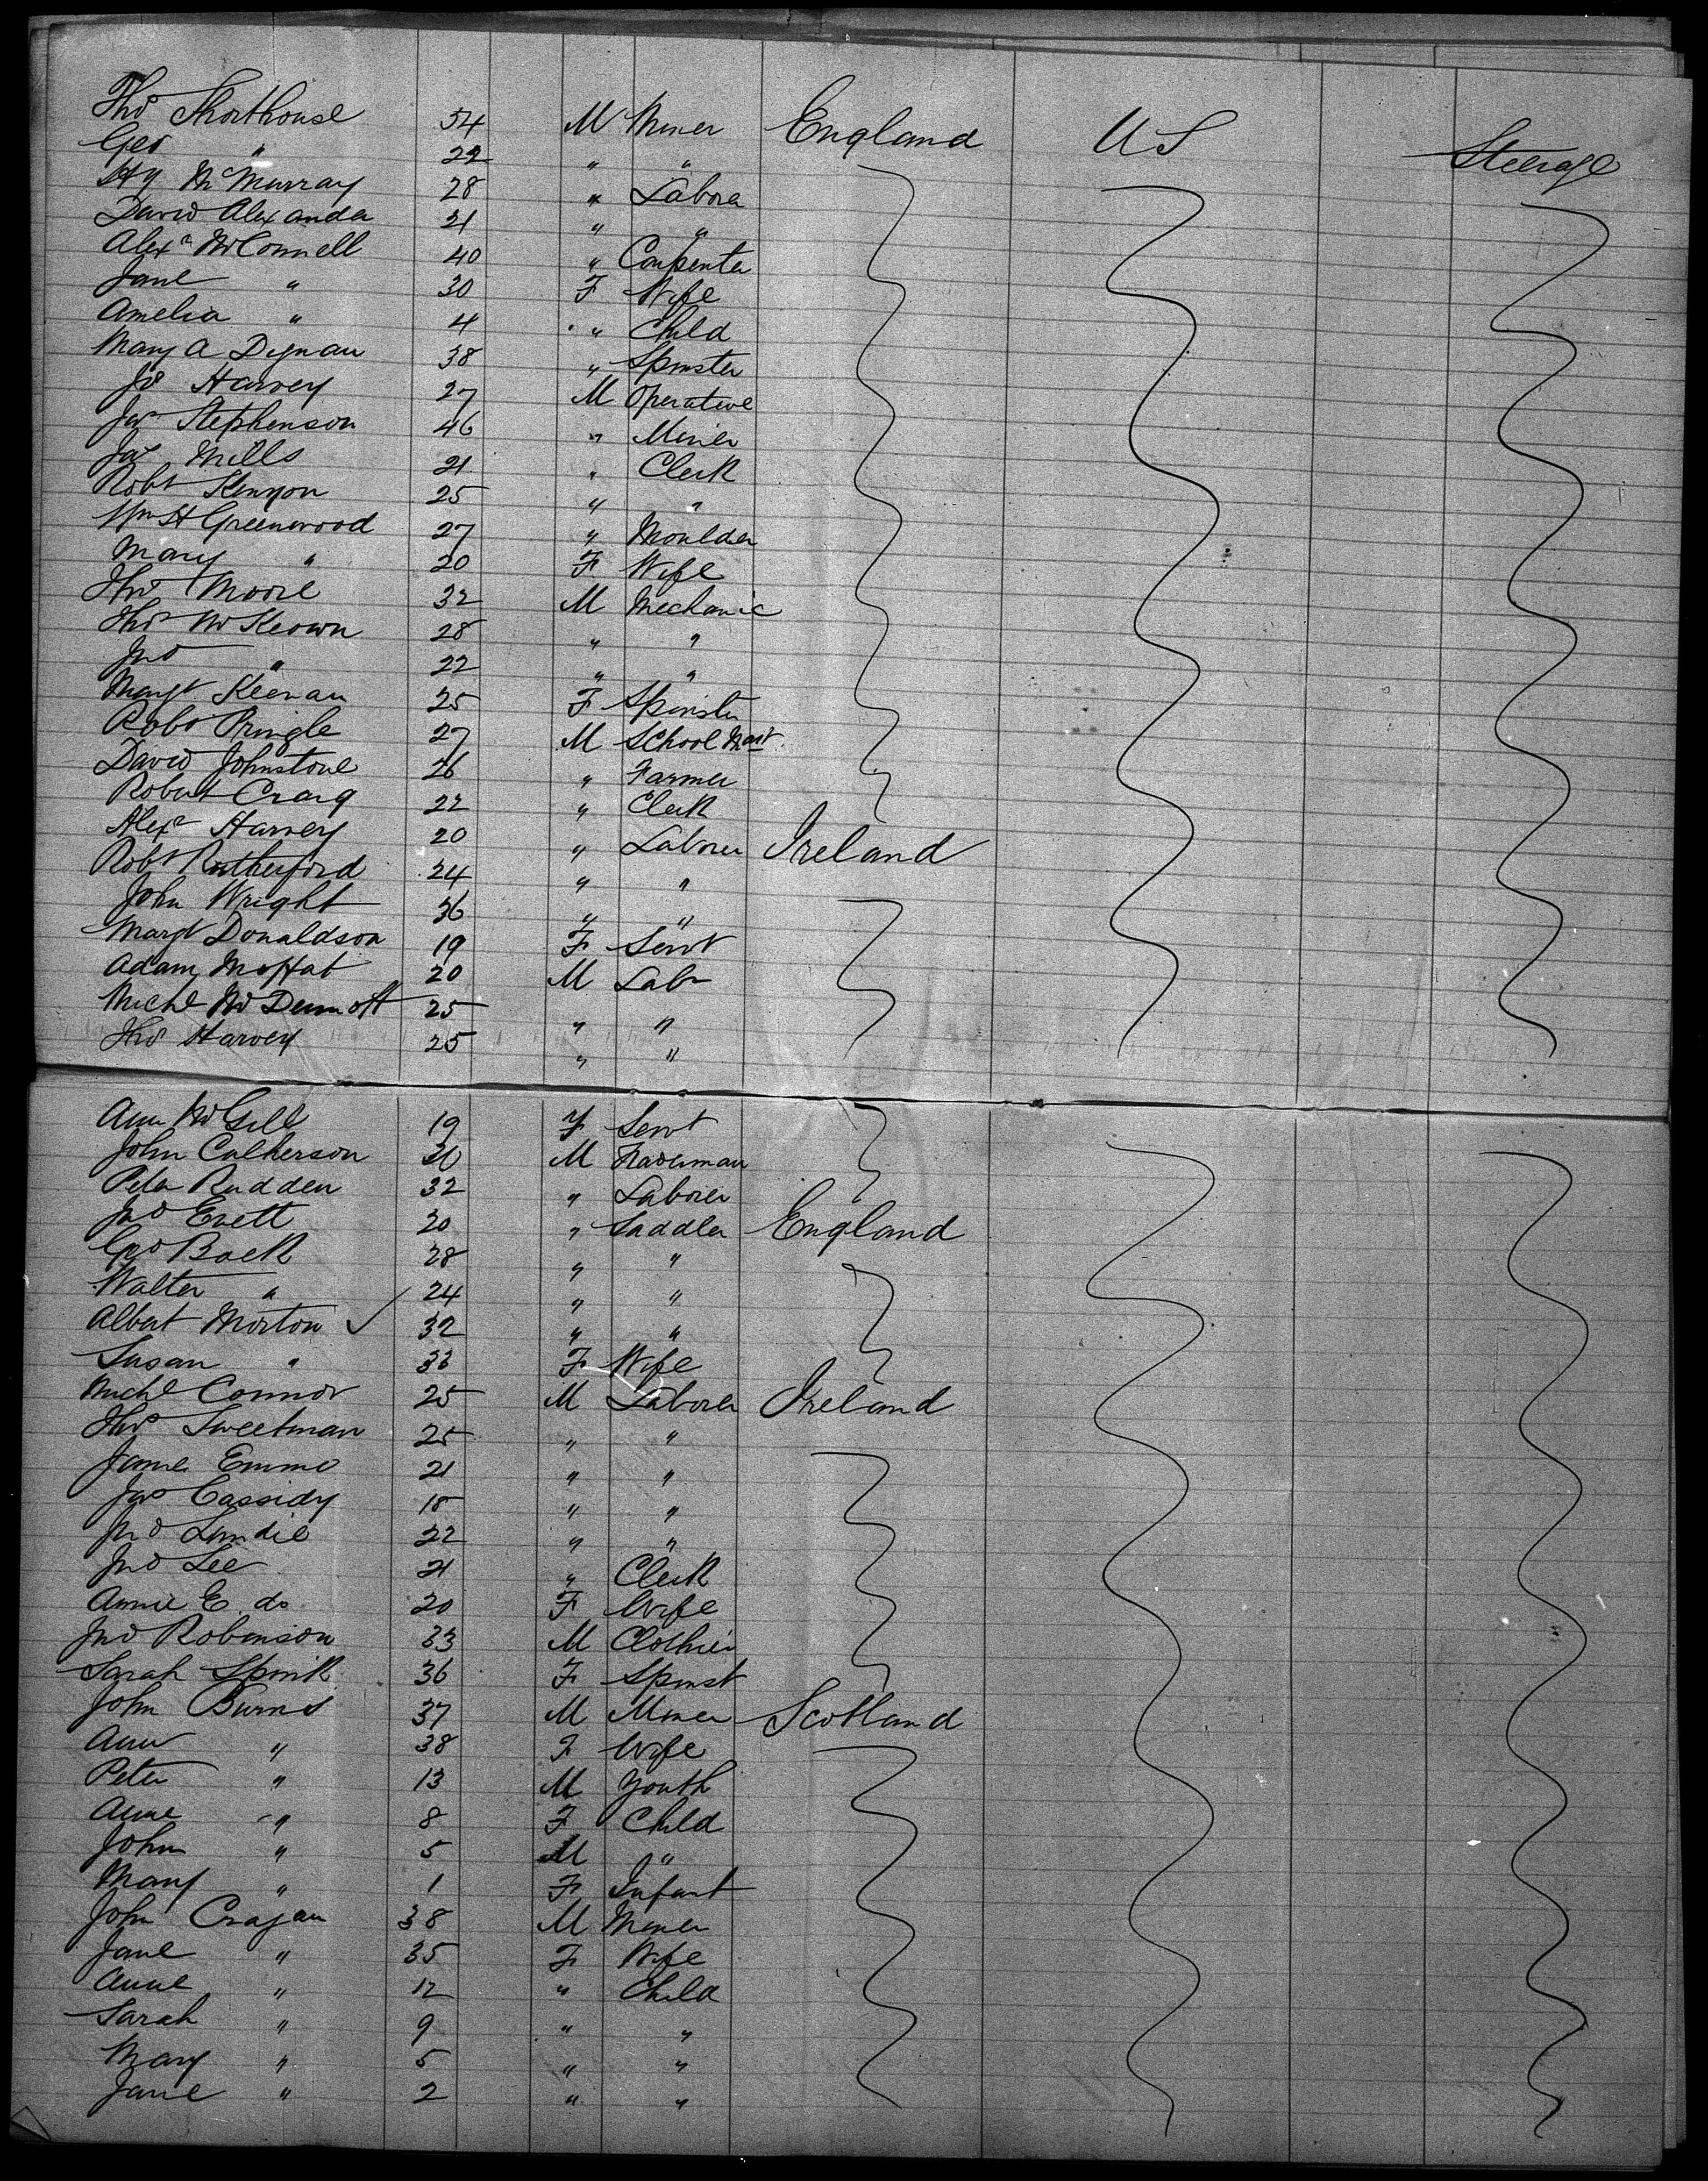 Thos Shorthouse 54 M Miner England US Steerage
Geo " 22 " "
Hy McMurray 28 " Laborer
David Alexander 21 " "
Alexr McConnell 40 " Carpenter
Jane " 30 F Wife
Amelia " 4 " Child
Mary A Dignan 38 " Spinster
Jos Harvey 27 M Operative
Jas Stephenson 46 " Miner
Jas Mills 21 " Clerk
Robt Kenyon 25 " "
Wm H Greenwood 27 " Moulder
Mary " 20 F Wife
Thos Moore 32 M Mechanic
Thos McKeown 28 " "
Jno " 22 " "
Margt Keenan 25 F Spinster
Robt Pringle 27 M School Mast.
David Johnstone 26 " Farmer
Robert Craig 22 " Clerk
Alexr Harvey 20 " Laborer Ireland
Robt Rutherford 24 " "
John Wright 36 " "
Margt Donaldson 19 F Servt
Adam Moffat 20 M Labr
Michl McDermott 25 " "
Thos Harvey 25 " "
Ann McGill 19 F Servt
John Culherson 30 M Tradesman
Peter Rudden 32 " Laborer
Jno Evett 20 " Saddler England
Geo Back 28 " "
Walter " 24 " "
Albert Morton ✓ 32 " "
Susan " 33 F Wife
Michl Connor 25 M Laborer Ireland
Thos Sweetman 25 " "
James Emmo 21 " "
Jas Cassidy 18 " "
Jno Lundie 22 " "
Jno Lee 21 " Clerk
Annie E. do 20 F Wife
Jno Robinson 33 M Clothier
Sarah Spink 36 F Spinst
John Burns 37 M Miner Scotland
Ann " 38 F Wife
Peter " 13 M Youth
Anne " 8 F Child
John " 5 M "
Mary " 1 F Infant
John Cragan 38 M Miner
Jane " 35 F Wife
Anne " 12 " Child
Sarah " 9 " "
Mary " 5 " "
Jane " 2 " "